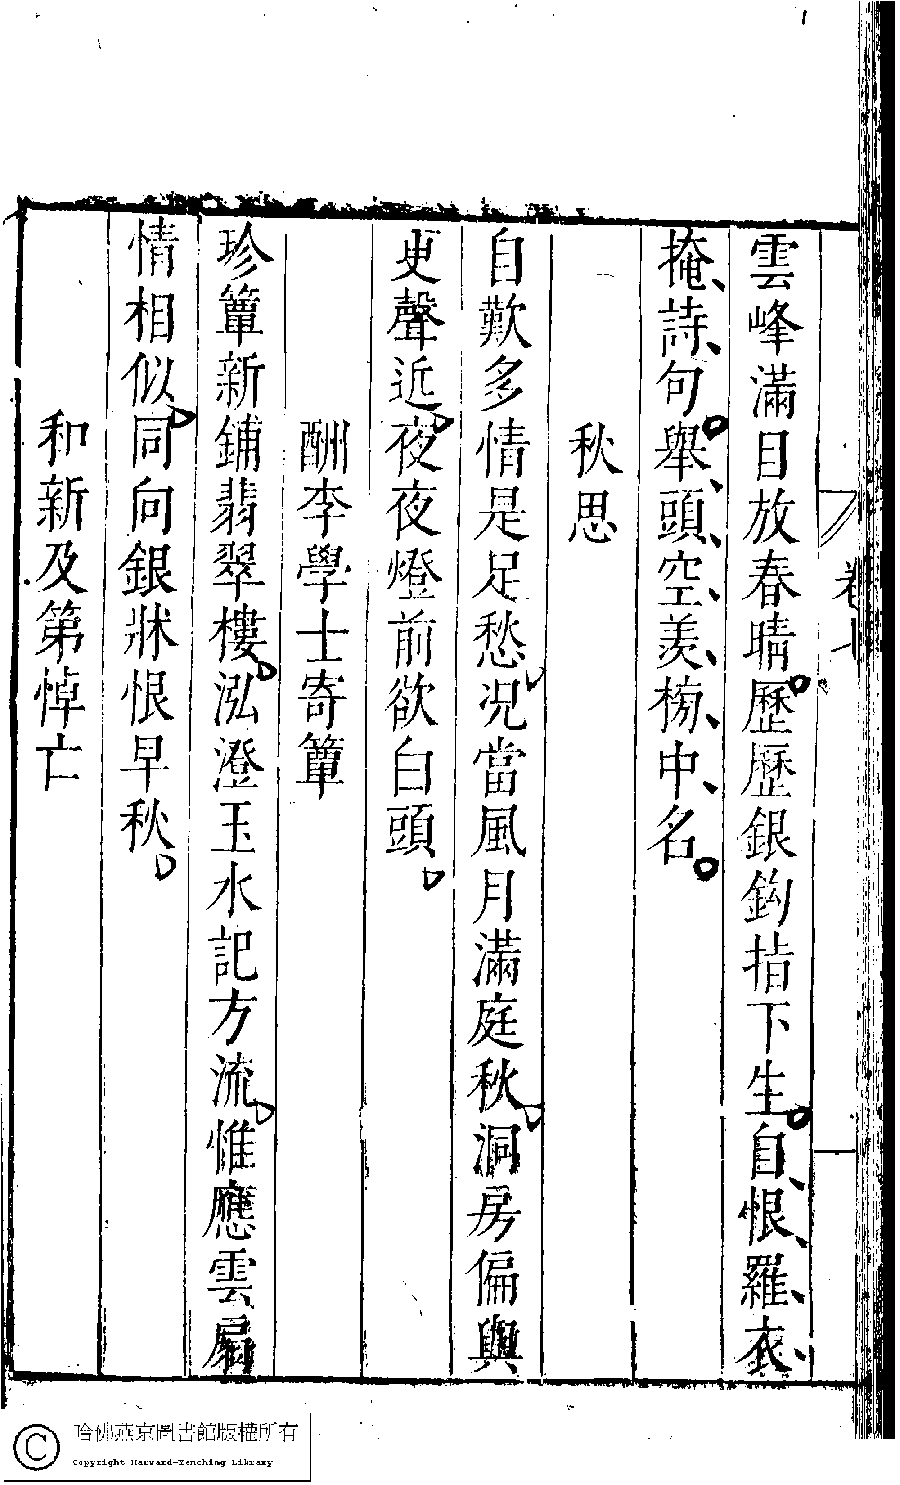 雲峰滿目放春晴歷歷銀鈎指下生自恨羅衣
掩詩句舉頭空羨榜中名
秋思
自歎多情是足愁况當風月滿庭秋洞房偏與
更聲近夜夜燈前欲白頭
酬李學士寄簟
珍簟新鋪翡翠樓泓澄玉水記方流惟應雲扇
情相似同向銀牀恨早秋
和新及第悼亡
哈佛燕京圖書館版權所有
Copyright Harvard-Yenching Library